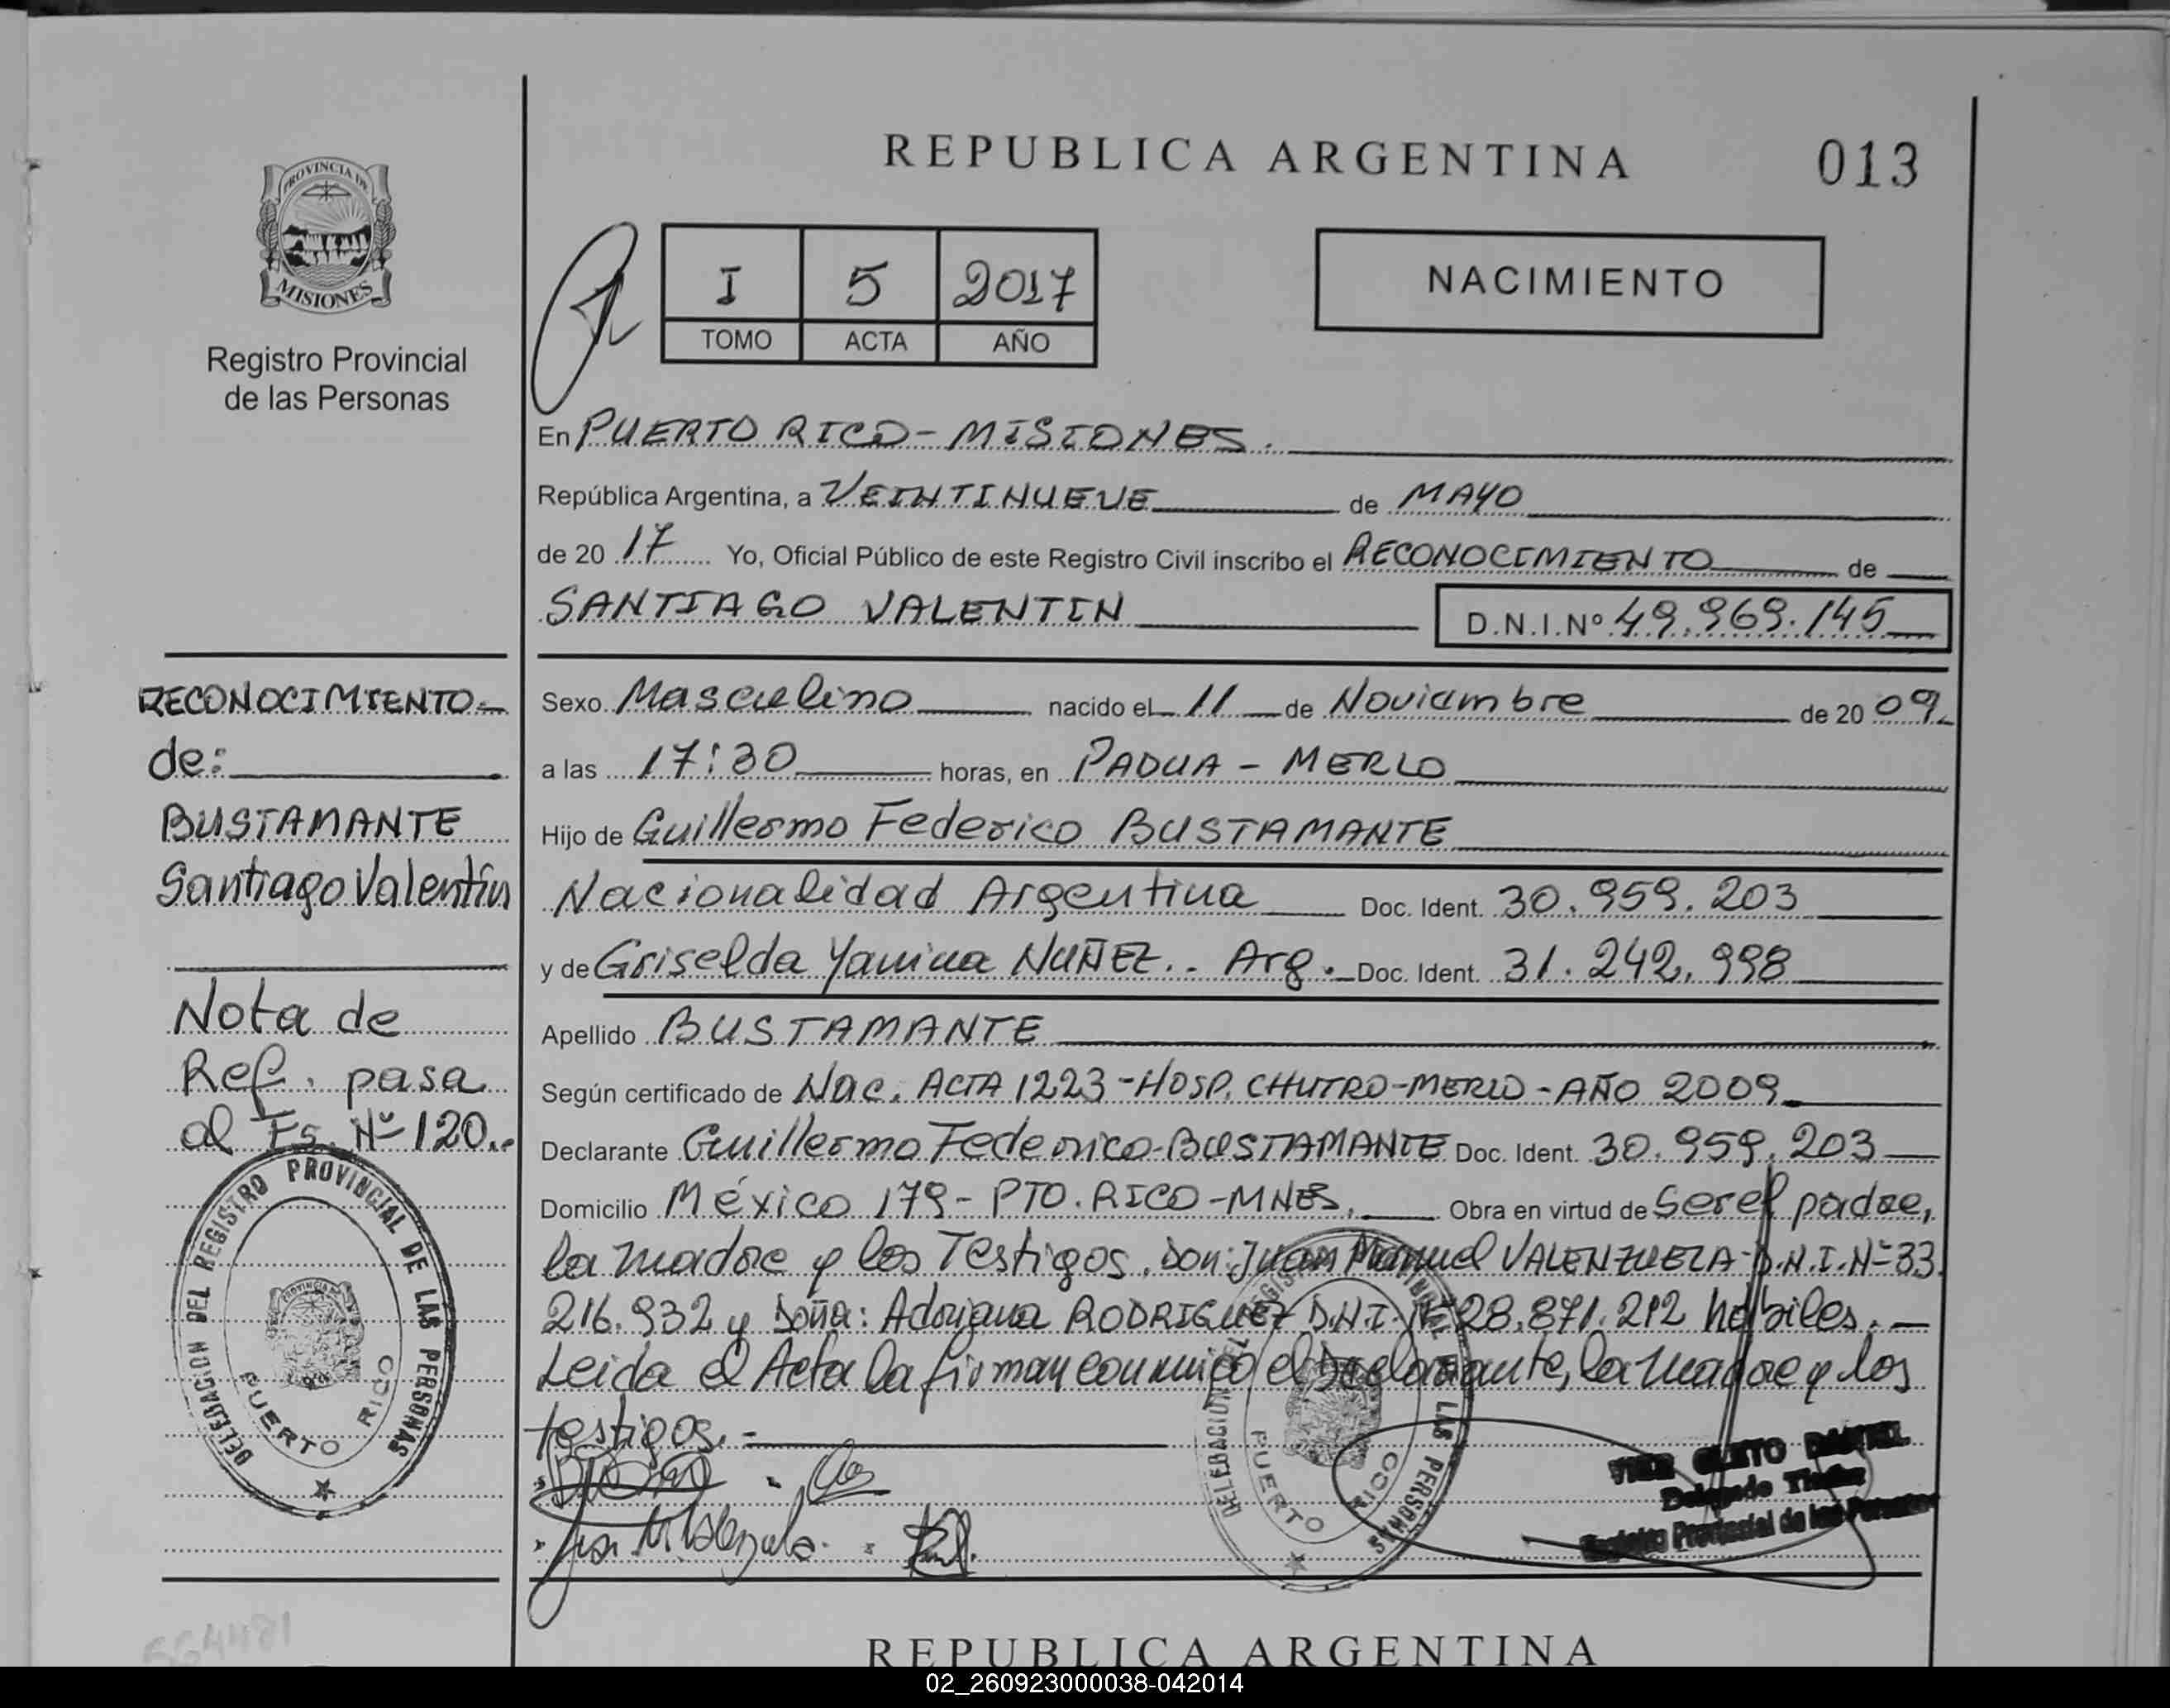 REPUBLICA ARGENTINA
013
PROVINCIA DE
MISIONES
Registro Provincial
de las Personas
I 5 2017
TOMO ACTA AÑO
NACIMIENTO
En PUERTO RICO - MISIONES.
República Argentina, a VEINTINUEVE de MAYO
de 20 17 Yo, Oficial Público de este Registro Civil inscribo el RECONOCIMIENTO de
SANTIAGO VALENTIN
D.N.I.Nº 49.969.145
RECONOCIMIENTO
de:
BUSTAMANTE
Santiago Valentín
Nota de
Ref. pasa
al Fs. Nº 120.-
Sexo Masculino nacido el 11 de Noviembre de 20 09
a las 17:30 horas, en PADUA - MERLO
Hijo de Guillermo Federico BUSTAMANTE
Nacionalidad Argentina Doc. Ident. 30.959.203
y de Griselda Yanina NUÑEZ.- Arg. Doc. Ident. 31.242.998
Apellido BUSTAMANTE
Según certificado de Nac. ACTA 1223 - HOSP. CHUTRO - MERLO - AÑO 2009
Declarante Guillermo Federico BUSTAMANTE Doc. Ident. 30.959.203
Domicilio México 179 - PTO. RICO - MNES. Obra en virtud de Ser el padre,
la madre y los Testigos, Don: Juan Manuel VALENZUELA - D.N.I. Nº 33.
216.932 y Doña: Adriana RODRIGUEZ D.N.I. Nº 28.871.212 hábiles.-
Leida el Acta la firman conmigo el Declarante, la madre y los
testigos.-
DELEGACION DEL REGISTRO PROVINCIAL DE LAS PERSONAS
PUERTO RICO
DELEGACION DEL REGISTRO PROVINCIAL DE LAS PERSONAS
PUERTO RICO
Delegado Titular
Registro Provincial de las Personas
564481
REPUBLICA ARGENTINA
02_260923000038-042014